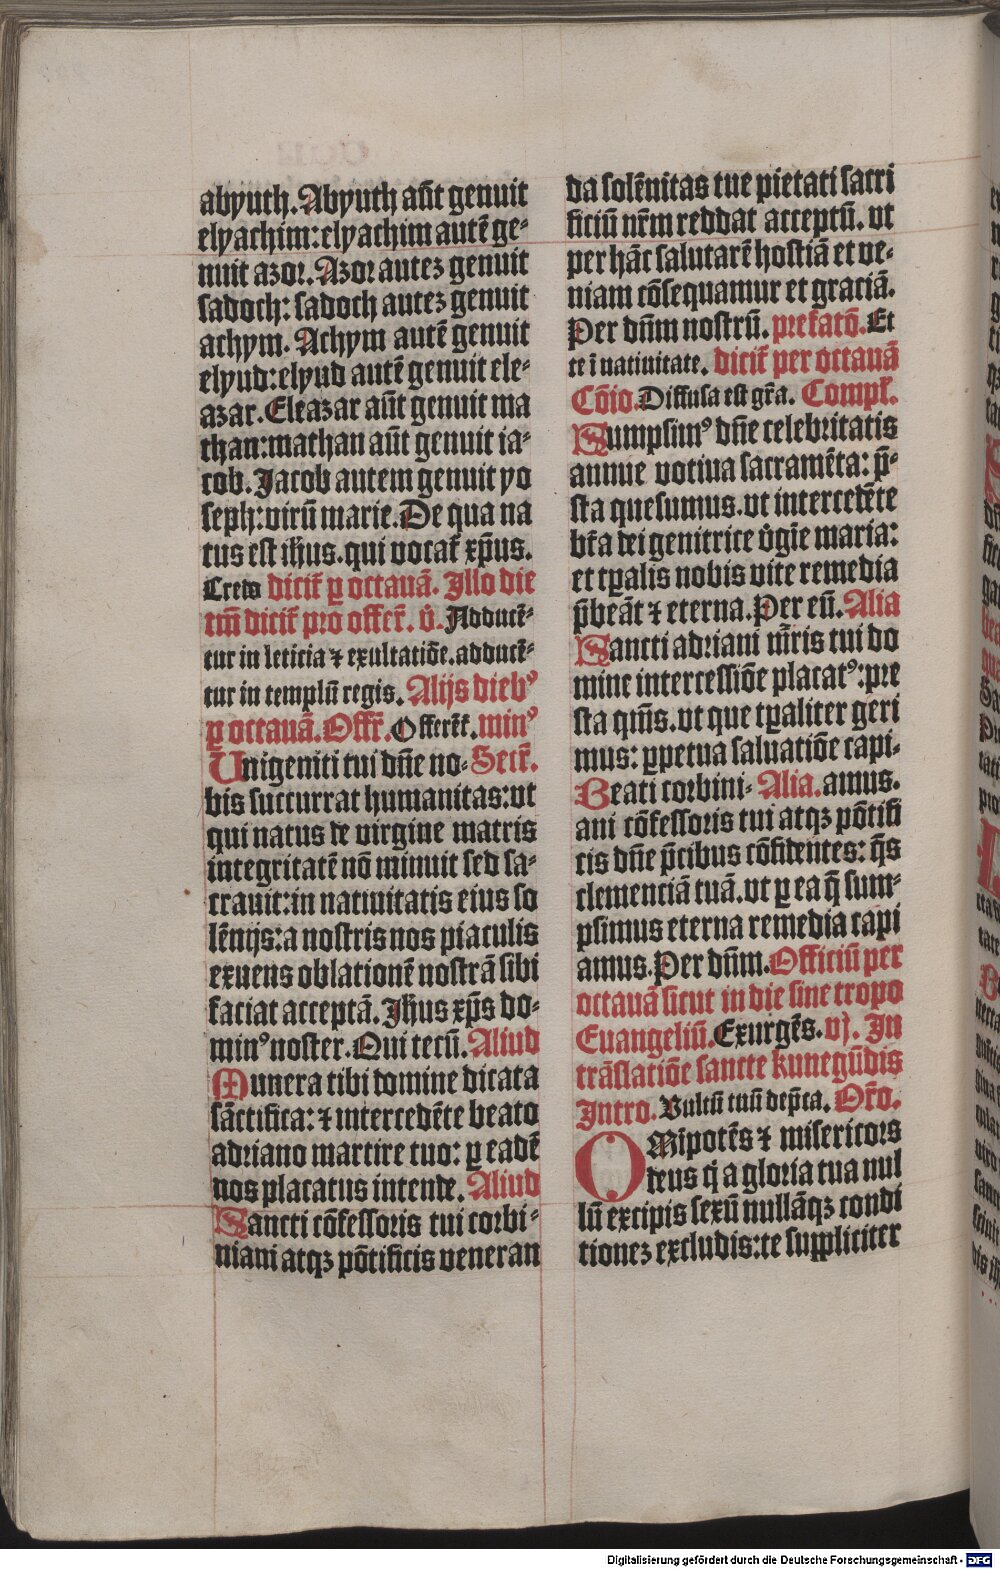 abyuth. Abyuth aūt genuit
elyachim: elyachim autē ge⸗
nuit azor. Azor autez genuit
sadoch: sadoch autez genuit
achym. Achym autē genuit
elyud: elyud autē genuit ele⸗
azar. Eleazar aūt genuit ma
than: mathan aūt genuit ia⸗
cob. Jacob autem genuit yo
seph: virū marie. De qua na
tus est ihus. qui vocat᷑ xp̄us.
Credo dicit᷑ ꝑ octauā. Illo die
tm̄ dicit᷑ pro offer᷑. v᷑. Adducē⸗
tur in leticia ⁊ exultatiōe. adducē⸗
tur in templū regis. Alijs dieb⁹
ꝑ octauā. Offr᷑. Offerēt᷑. min⁹
Unigeniti tui dn̄e no⸗ Secr᷑.
bis succurrat humanitas: vt
qui natus de virgine matris
integritatē nō minuit sed sa⸗
crauit: in natiuitatis eius so
lēnijs: a nostris nos piaculis
exuens oblationē nostrā sibi
faciat acceptā. Jhus xp̄s do⸗
min⁹ noster. Qui tecū. Aliud
Munera tibi domine dicata
sāctifica: ⁊ intercedēte beato
adriano martire tuo: ꝑ eadē
nos placatus intende. Aliud
Sancti cōfessoris tui corbi⸗
niani atqꝫ pōtificis veneran
da solēnitas tue pietati sacri
ficiū nr̄m reddat acceptū. vt
per hāc salutarē hostiā et ve⸗
niam cōsequamur et graciā.
Per dn̄m nostrū. prefatō. Et
te ī natiuitate. dicit᷑ per octauā
Cōio. Diffusa est gr̄a. Compl᷑.
Sumpsim⁹ dn̄e celebritatis
annue votiua sacramēta: p̄⸗
sta quesumus. vt intercedēte
bt̄a dei genitrice v᷑gīe maria:
et tp̄alis nobis vite remedia
p̄beāt ⁊ eterna. Per eū. Alia
Sancti adriani mr̄is tui do
mine intercessiōe placat⁹: pre
sta qm̄s. vt que tp̄aliter geri
mus: ꝑpetua saluatiōe capi⸗
Beati corbini⸗ Alia. amus.
ani cōfessoris tui atqꝫ pōtifi
cis dn̄e p̄cibus cōfidentes: q̄s
clemenciā tuā. vt ꝑ ea q̄ sum⸗
psimus eterna remedia capi
amus. Per dn̄m. Officiū per
octauā sicut in die sine tropo
Euangeliū. Exurgēs. vj. In
trāslatiōe sancte kunegūdis
Intro. Vultū tuū dep̄ca. Or̄o.
OMipotēs ⁊ misericors
deus q̇ a gloria tua nul
lū excipis sexū nullāqꝫ condi
tionez excludis: te suppliciter
Digitalisierung gefördert durch die Deutsche Forschungsgemeinschaft - DFG